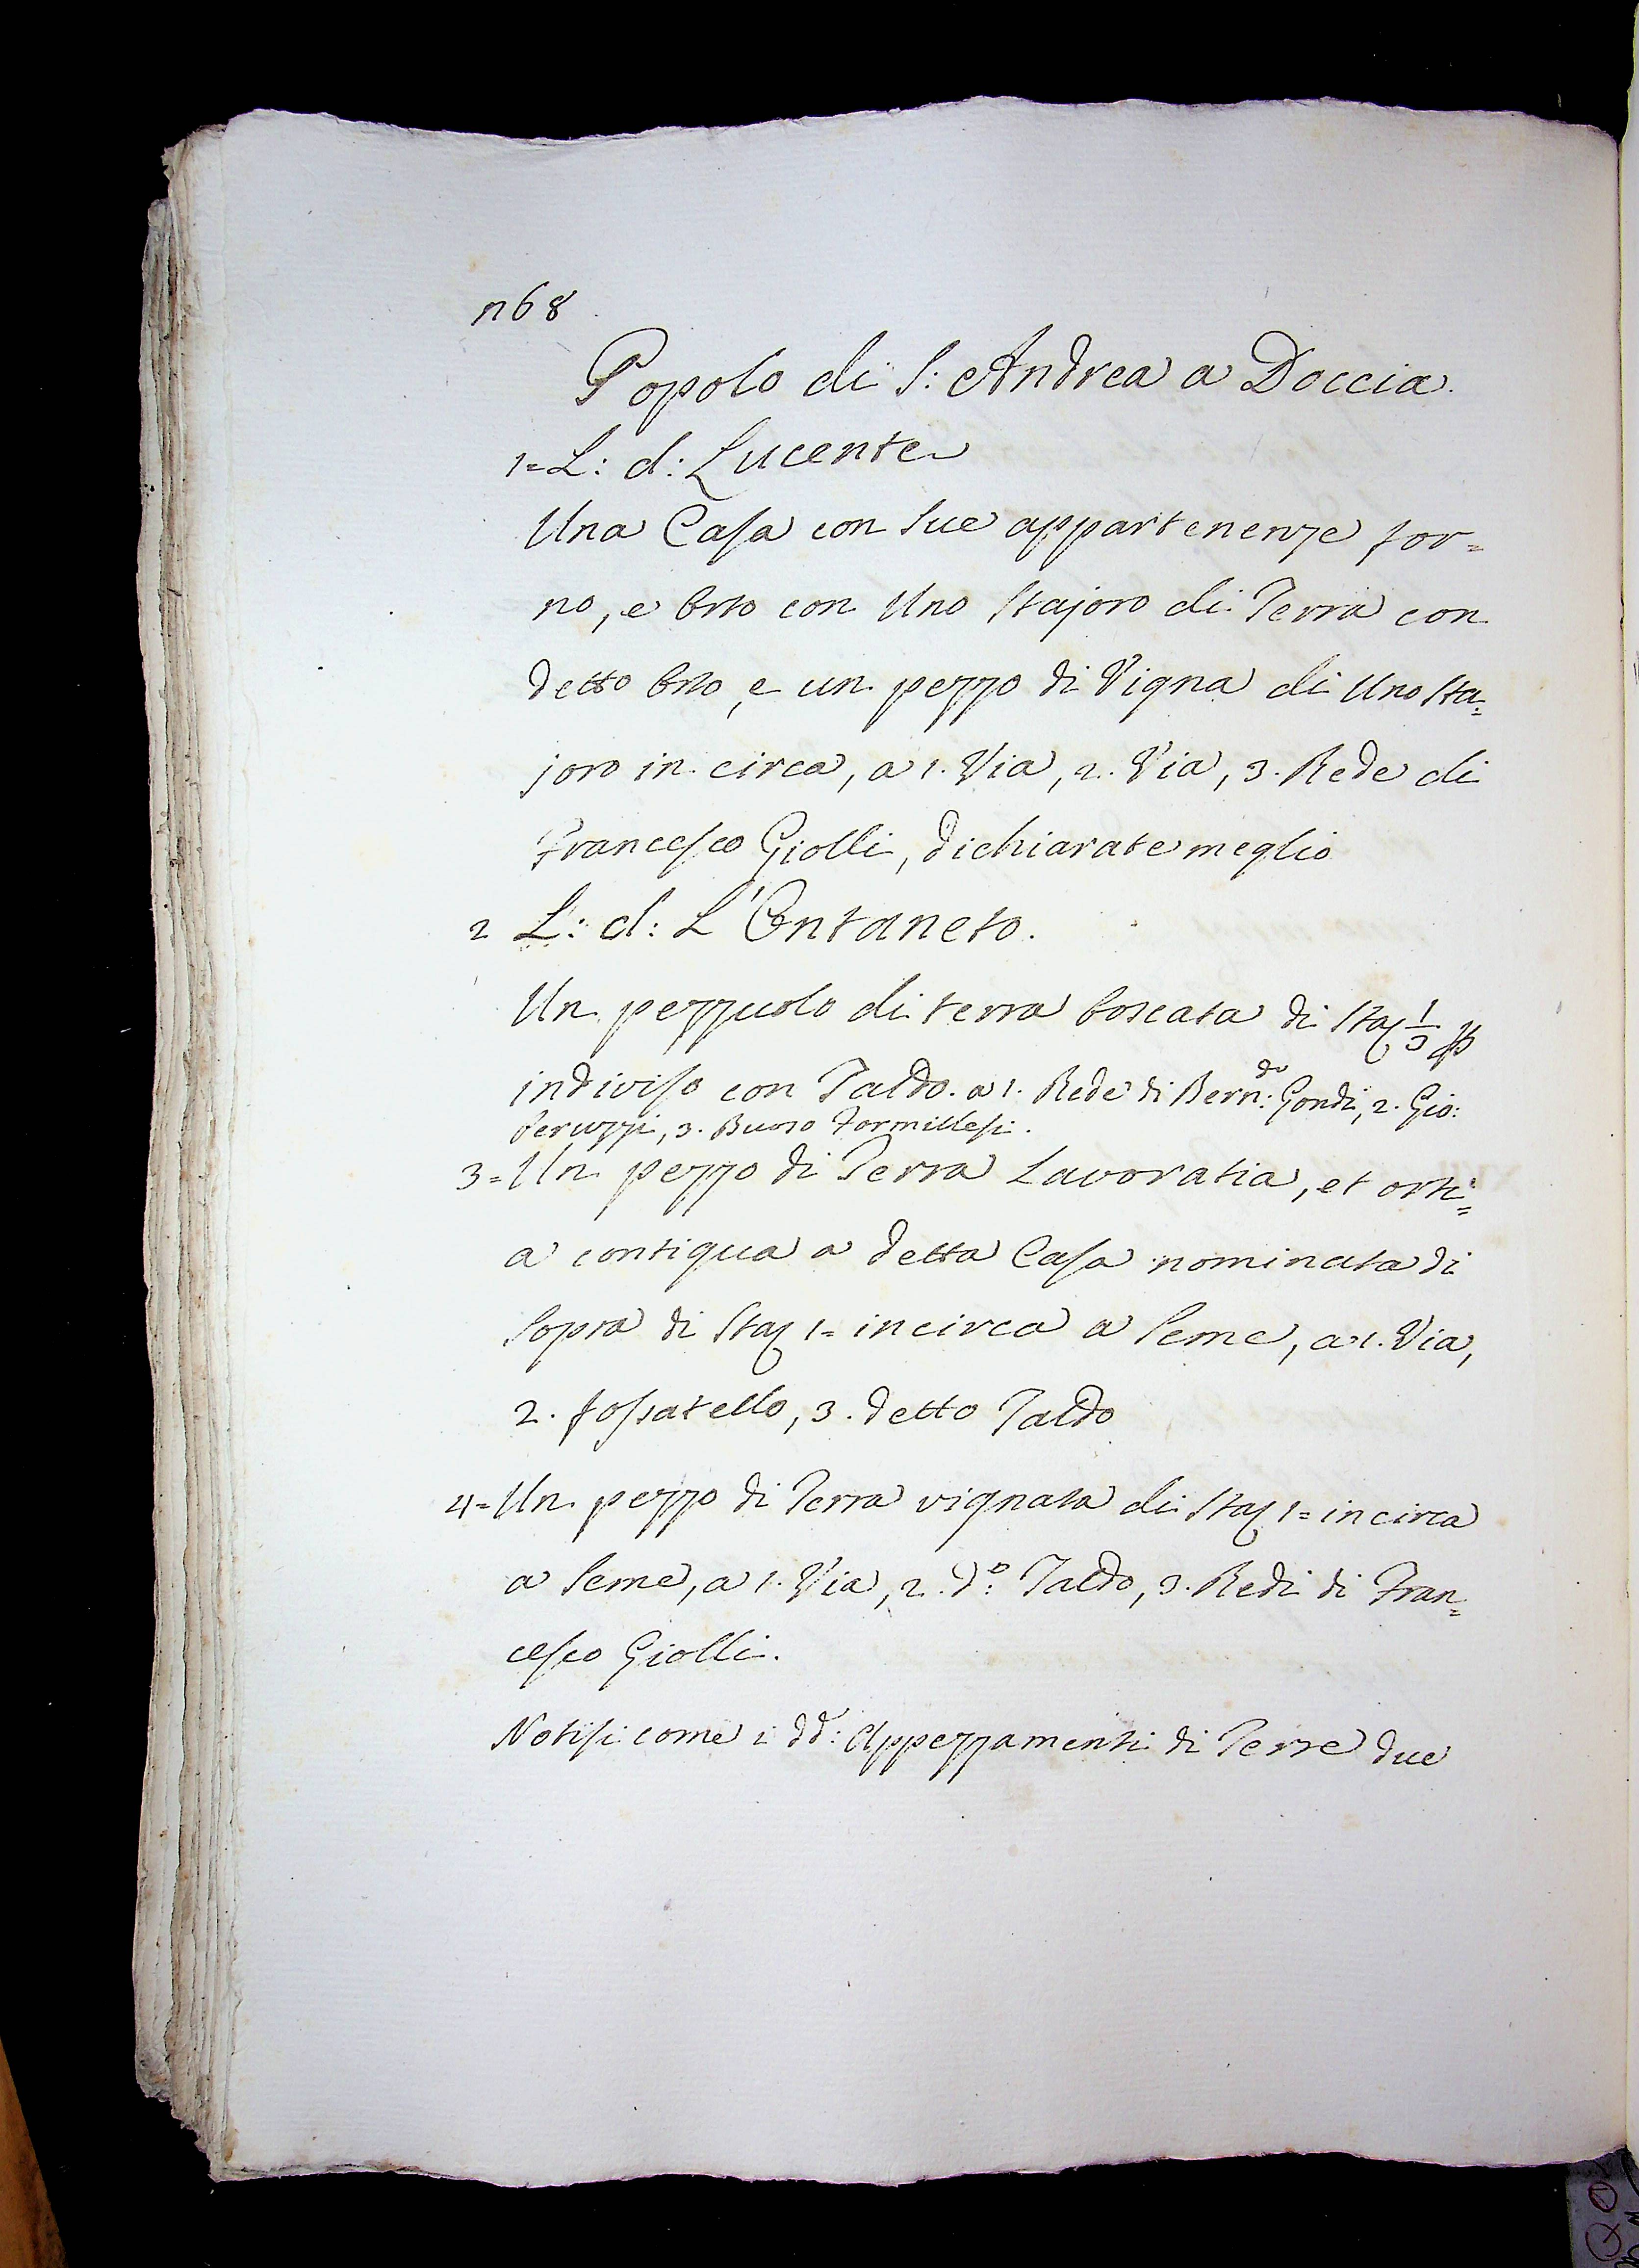 n68
Popolo di S: Andrea a Doccia.
1= L: d: Lucente
Una Casa con sue appartenenze for=
no, e Orto con Uno Stajoro di Terra con
detto Orto, e un pezzo di Vigna di Uno Sta=
joro in circa, a 1. Via, 2. Via, 3. Rede di
Francesco Giolli, dichiarate meglio
2 L: d: L'Ontaneto.
Un pezzuolo di terra boscata di Sta 1/3 p
indiviso con Taldo. a 1. Rede di Bern:do Gondi, 2. Gio:
Peruzzi, 3. Buoso Formillesi.
3= Un pezzo di Terra Lavoratia, et orti=
a contigua a detta Casa nominata di
Sopra di Sta 1= incirca a Seme, a 1. Via,
2. fossatello, 3. detto Taldo
4= Un pezzo di Terra vignata di Sta 1= in circa
a Seme, a 1. Via, 2. d:o Taldo, 3. Redi di Fran=
cesco Giolli.
Notisi come i dd: Appezzamenti di Terre due